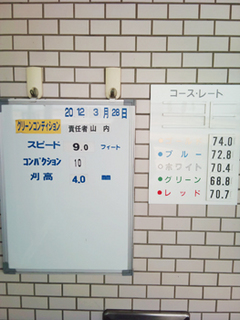 2012 3月28日
グリーンコンディション 責任者 山内
スピード 9.0 フィート
コンパクション 10
刈高 4.0 mm
コース・レート
74.0
●ブルー 72.8
○ホワイト 70.4
●グリーン 68.8
●レッド 70.7